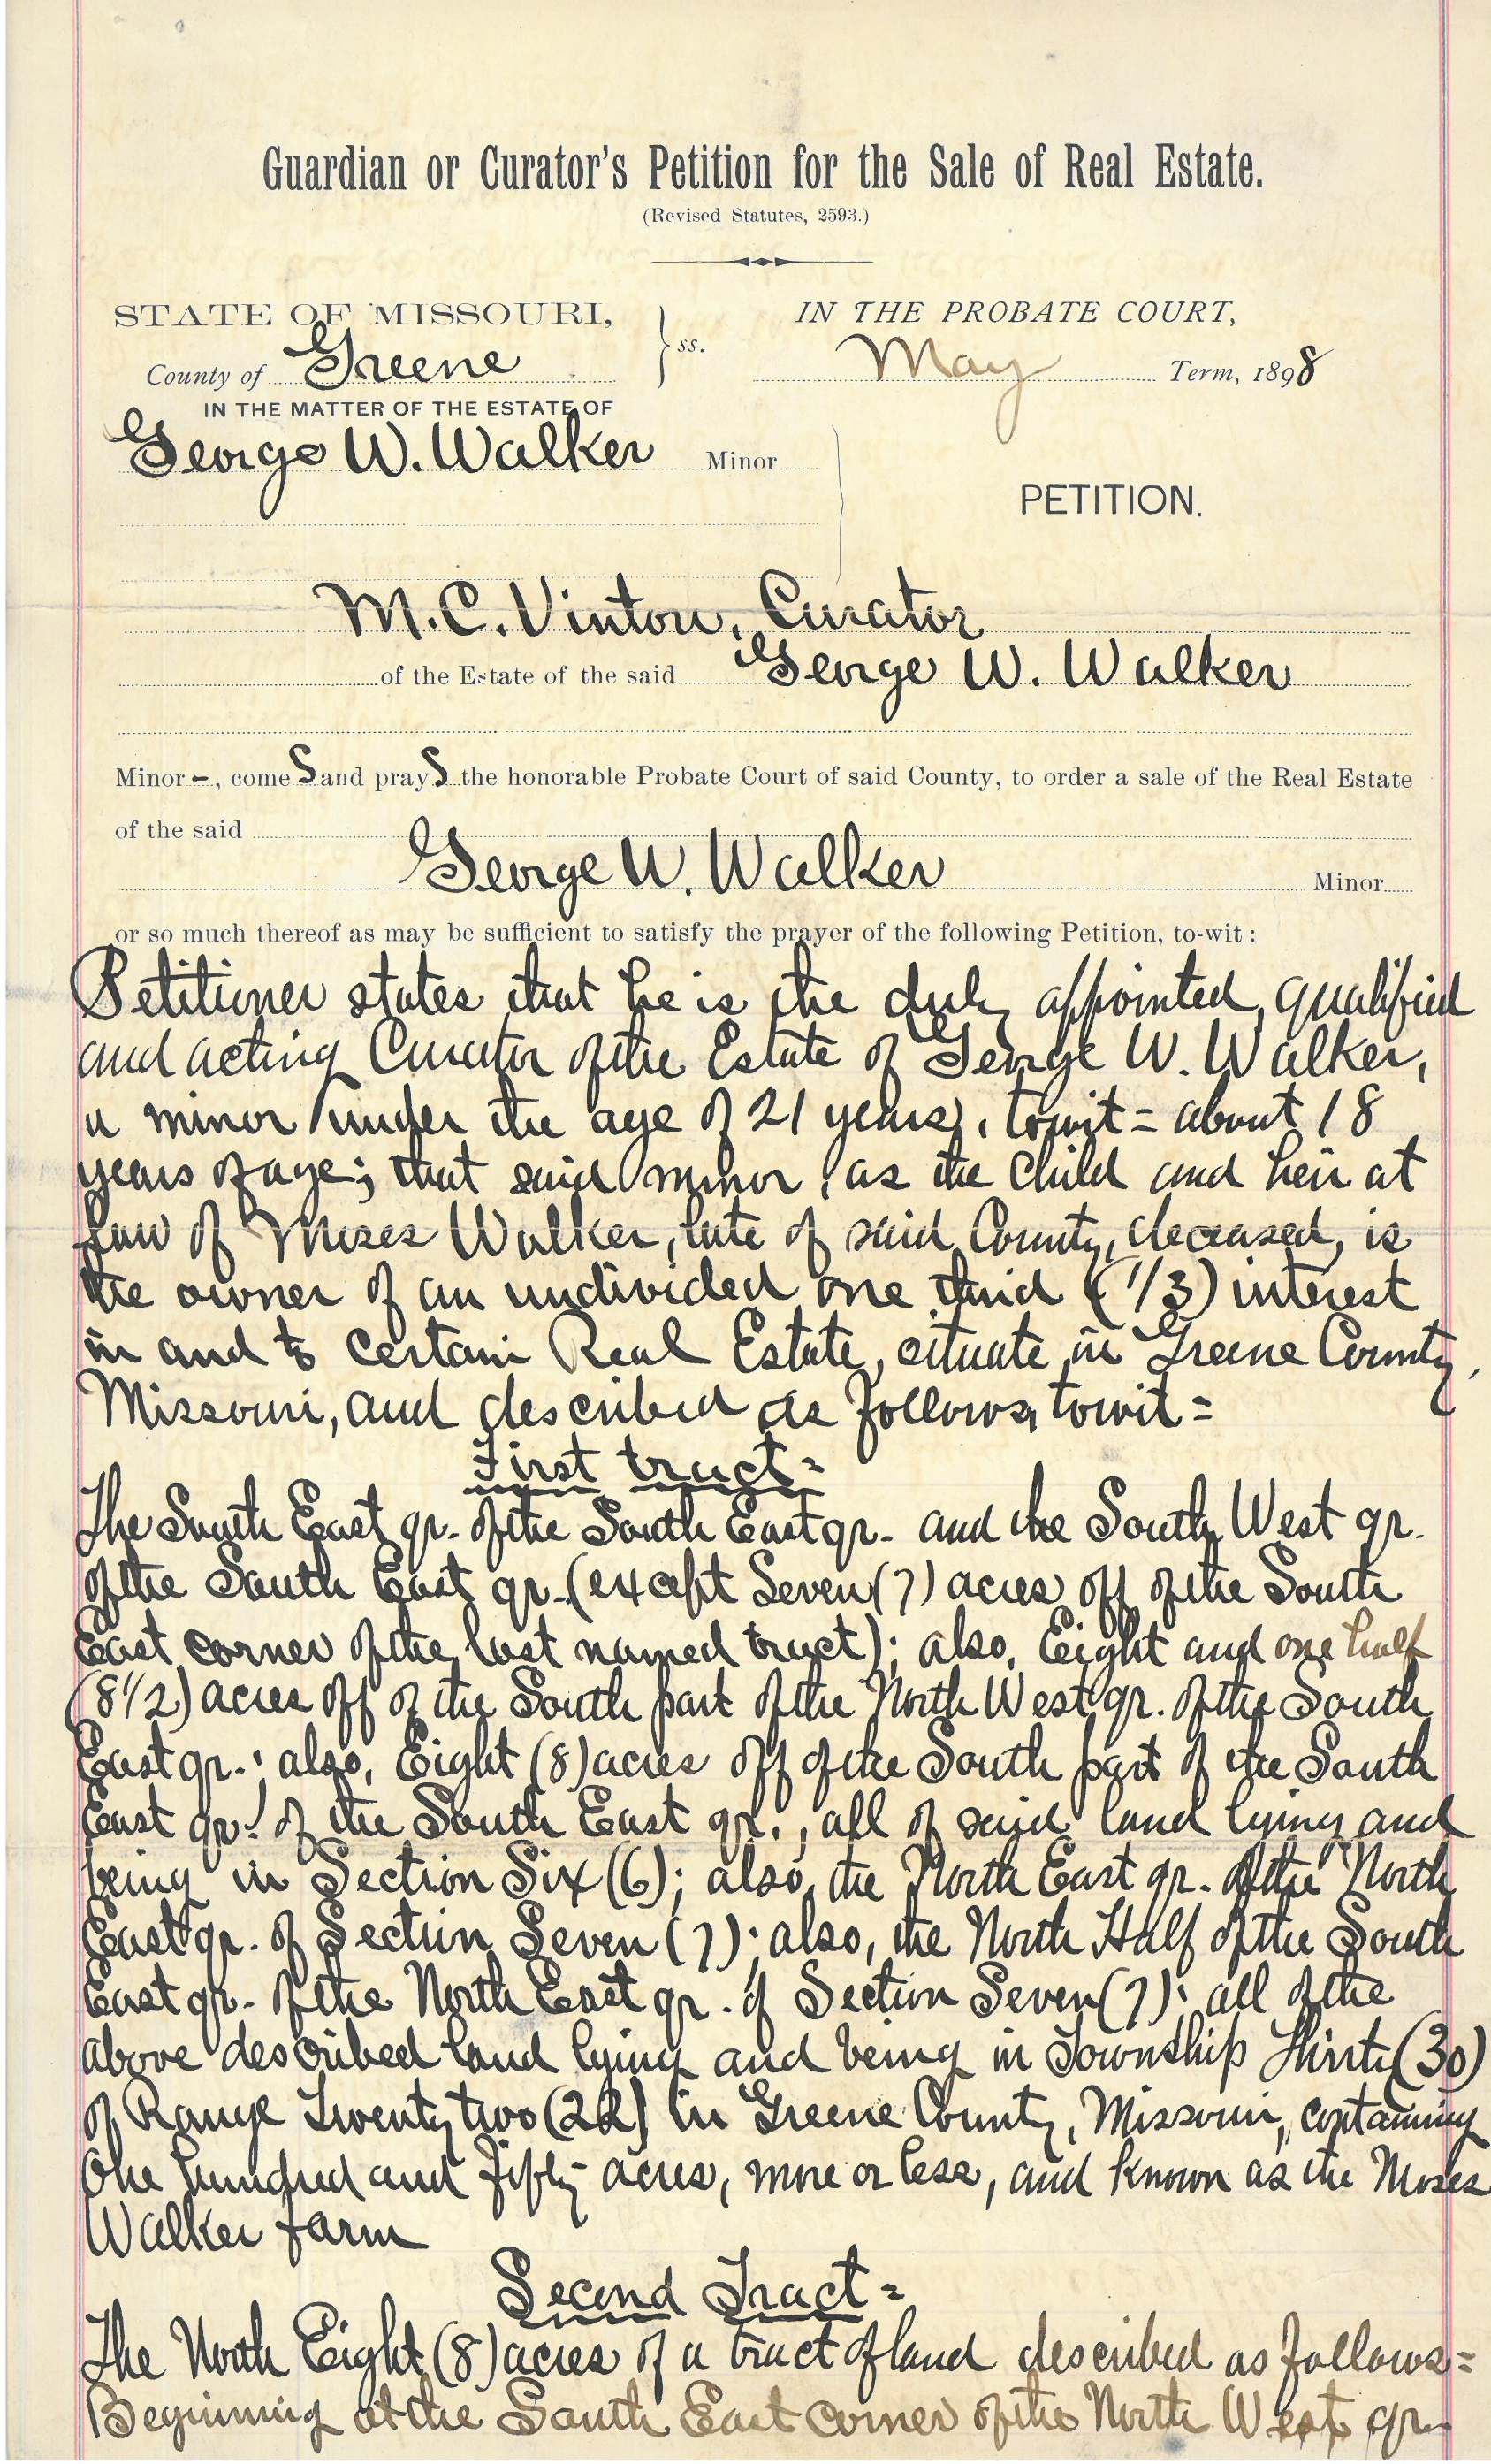 Guardian or Curator's Petition for the Sale of Real Estate.
(Revised Statutes, 2593.)
STATE OF MISSOURI,
County of Greene
ss.
IN THE PROBATE COURT,
May Term, 1898
IN THE MATTER OF THE ESTATE OF
George W. Walker Minor
PETITION.
M. C. Vinton, Curator
of the Estate of the said George W. Walker
Minor -, come s and pray s the honorable Probate Court of said County, to order a sale of the Real Estate
of the said
George W. Walker Minor
or so much thereof as may be sufficient to satisfy the prayer of the following Petition, to-wit:
Petitioner states that he is the duly appointed, qualified
and acting Curator of the Estate of George W. Walker,
a minor under the age of 21 years, towit= about 18
years of age; that said minor, as the child and heir at
law of Moses Walker, late of said County, deceased, is
the owner of an undivided one third (1/3) interest
in and to certain Real Estate, situate in Greene County,
Missouri, and described as follows, towit=
First tract=
The South East qr. of the South East qr. and the South West qr.
of the South East qr. (except Seven (7) acres off of the South
East corner of the last named tract); also, Eight and one half
(8 1/2) acres off of the South part of the North West qr. of the South
East qr.; also, Eight (8) acres off of the South part of the South
East qr. of the South East qr., all of said land lying and
being in Section Six (6); also, the North East qr. of the North
East qr. of Section Seven (7); also, the North Half of the South
East qr. of the North East qr. of Section Seven (7); all of the
above described land lying and being in Township Thirty (30)
of Range Twenty two (22) in Greene County, Missouri, containing
One hundred and fifty acres, more or less, and known as the Moses
Walker farm
Second Tract=
The North Eight (8) acres of a tract of land described as follows=
Beginning at the South East corner of the North West qr.